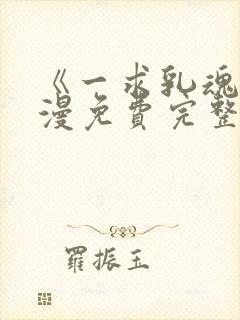 《一求乳魂
漫免费完整
羅振玉